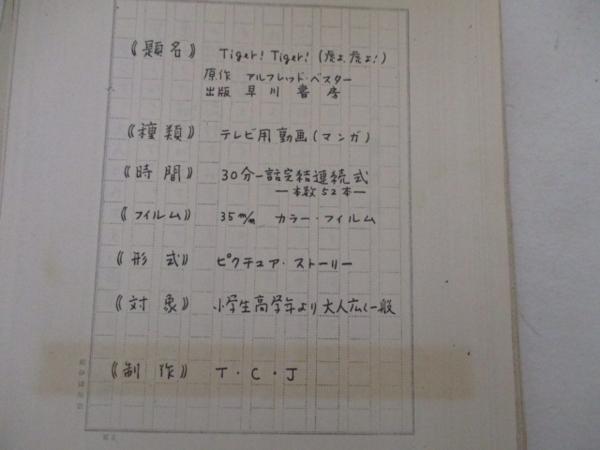 《題名》 Tiger! Tiger! (虎よ、虎よ!)
原作 アルフレッド・ベスター
出版 早川書房
《種類》 テレビ用動画(マンガ)
《時間》 30分一話完結連続式
―本数52本―
《フィルム》 35m/m カラー・フィルム
《形式》 ピクチュア・ストーリー
《対象》 小学生高学年より大人広く一般
《制作》 T・C・J